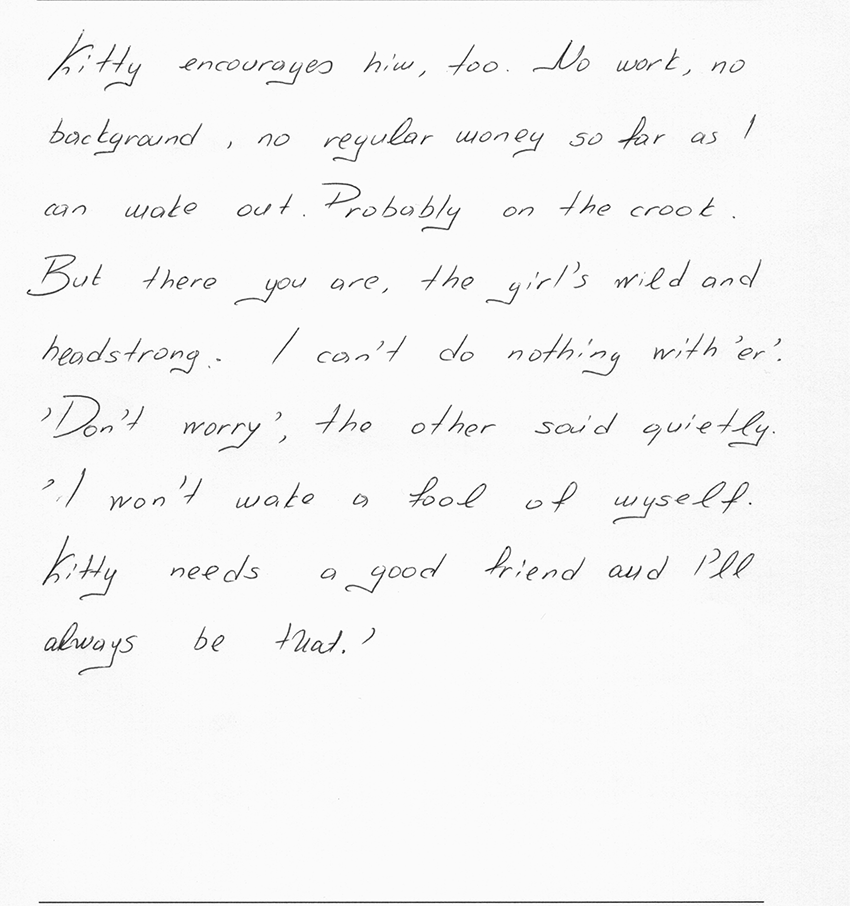 Kitty encourages him, too. No work, no
background, no regular money so far as I
can make out. Probably on the crook.
But there you are, the girl's wild and
headstrong. I can't do nothing with 'er'.
'Don't worry', the other said quietly.
'I won't make a fool of myself.
Kitty needs a good friend and I'll
always be that.'